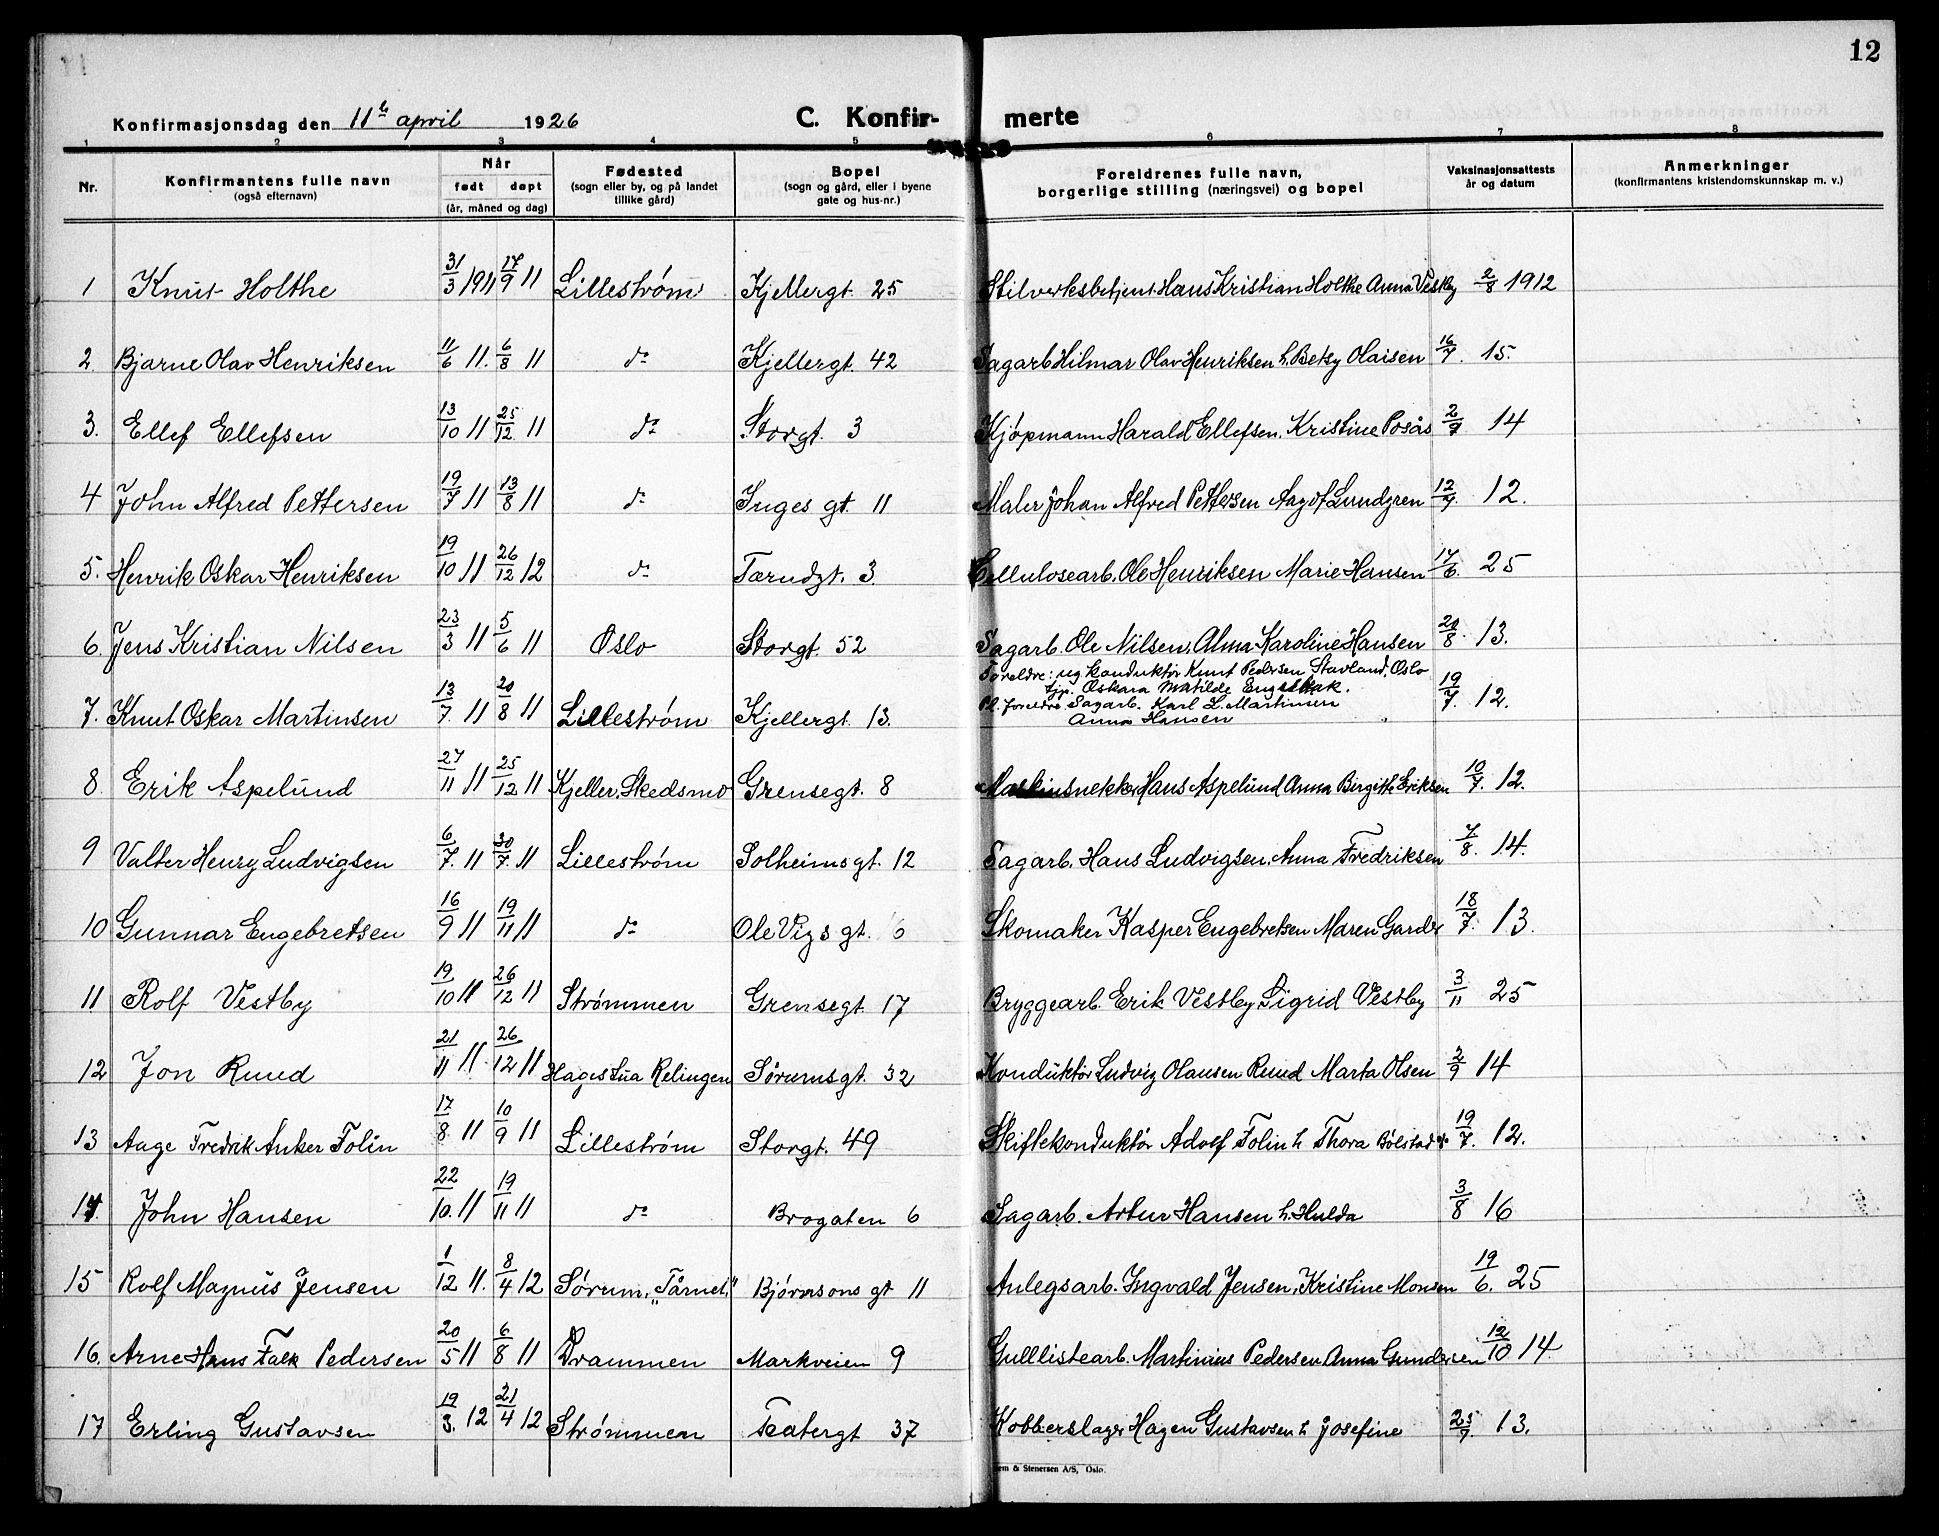 12
Konfirmasjonsdag den 11te april 1926 C. Konfir- merte
1 2 3 4 5 6 7 8
Nr. Konfirmantens fulle navn (også efternavn) Når født døpt (år, måned og dag) Fødested (sogn eller by, og på landet tillike gård) Bopel (sogn og gård, eller i byene gate og hus-nr.) Foreldrenes fulle navn, borgerlige stilling (næringsvei) og bopel Vaksinasjonsattests år og datum Anmerkninger (konfirmantens kristendomskunnskap m. v.)
1 Knut Holthe 31/3 1911 17/9 11 Lillestrøm Kjellergt. 25 Stilverksbetjent Hans Kristian Holthe Anna Vestby 2/8 1912
2 Bjarne Olav Henriksen 11/6 11. 6/8 11 do Kjellergt. 42 Sagarb Hilmar Olav Henriksen h. Betsy Olaisen 16/7. 15.
3. Ellef Ellefsen 13/10 11 25/12 11 do Storgt. 3 Kjøpmann Harald Ellefsen, Kristine Posås 2/9 14
4 John Alfred Pettersen 19/7 11 13/8 11 do Inges gt 11 Maler Johan Alfred Pettersen Lundgren 12/9. 12.
5. Henrik Oskar Henriksen 19/10 11 26/12 12 do Tærudgt. 3. Cellulosearb. Ole Henriksen Marie Hansen 17/6. 25
6. Jens Kristian Nilsen 23/3 11 5/6 11 Oslo Storgt. 52 Sagarb. Ole Nilsen, Alma Karoline Hansen 20/8. 13.
7. Knut Oskar Martinsen 13/7. 11 20/8 11 Lillestrøm Kjellergt. 13. Foreldre: ug konduktør Knut Pedersen Stavland, Oslo
tjp. Oskara Matilde
Pl. foreldre Sagarb. Karl L. Martinsen
Anna Hansen 19/7. 12.
8. Erik Aspelund 27/11 11 25/12 11 Kjeller, Skedsmo Grensegt. 8 Maskinsnekker Hans Aspelund Anna Birgitte Eriksen 10/7. 12.
9 Valter Henry Ludvigsen 6/7. 11 30/7. 11 Lillestrøm Solheimsgt. 12 Sagarb. Hans Ludvigsen, Anna Fredriksen 7/8. 14.
10 Gunnar Engebretsen 16/9 11 19/11 11 do Ole Vigs gt. 6 Skomaker Kasper Engebretsen Maren Garder 18/7. 13.
11 Rolf Vestby 19/10 11 26/12 11 Strømmen Grensegt. 17 Bryggearb. Erik Vestby, Sigrid Vestby 3/11 25
12 Jon Ruud 21/11 11. 26/12 11 Relingen Sørumsgt. 32 Konduktør Ludvig Olausen Ruud Marta Olsen 2/9 14
13 Aage Fredrik Anker Folin 17/8. 11 10/9 11 Lillestrøm Storgt. 49 Skiftekonduktør Adolf Folin h Thora Bølstad 19/7. 12.
14. John Hansen 22/10. 11 19/11 11 do Brogaten 6 Sagarb. Artur Hansen h. Hulda 3/8 16
15 Rolf Magnus Jensen 1/12 11. 8/4 12 Sørum, "Tårnet" Bjørnsons gt 11 Anlegsarb. Ingvald Jensen, Kristine Monsen 19/6. 25
16. Arne Hans Falk Pedersen 20/5 11 6/8 11 Drammen Markveien 9 Gulllistearb. Martinius Pedersen Anna Gundersen 12/10 14.
17 Erling Gustavsen 19/3. 12 21/4 12 Strømmen Teatergt 37 Kobberslager Hagen Gustavsen h Josefine 25/9. 13.
em & Stenersen A/S, Oslo.